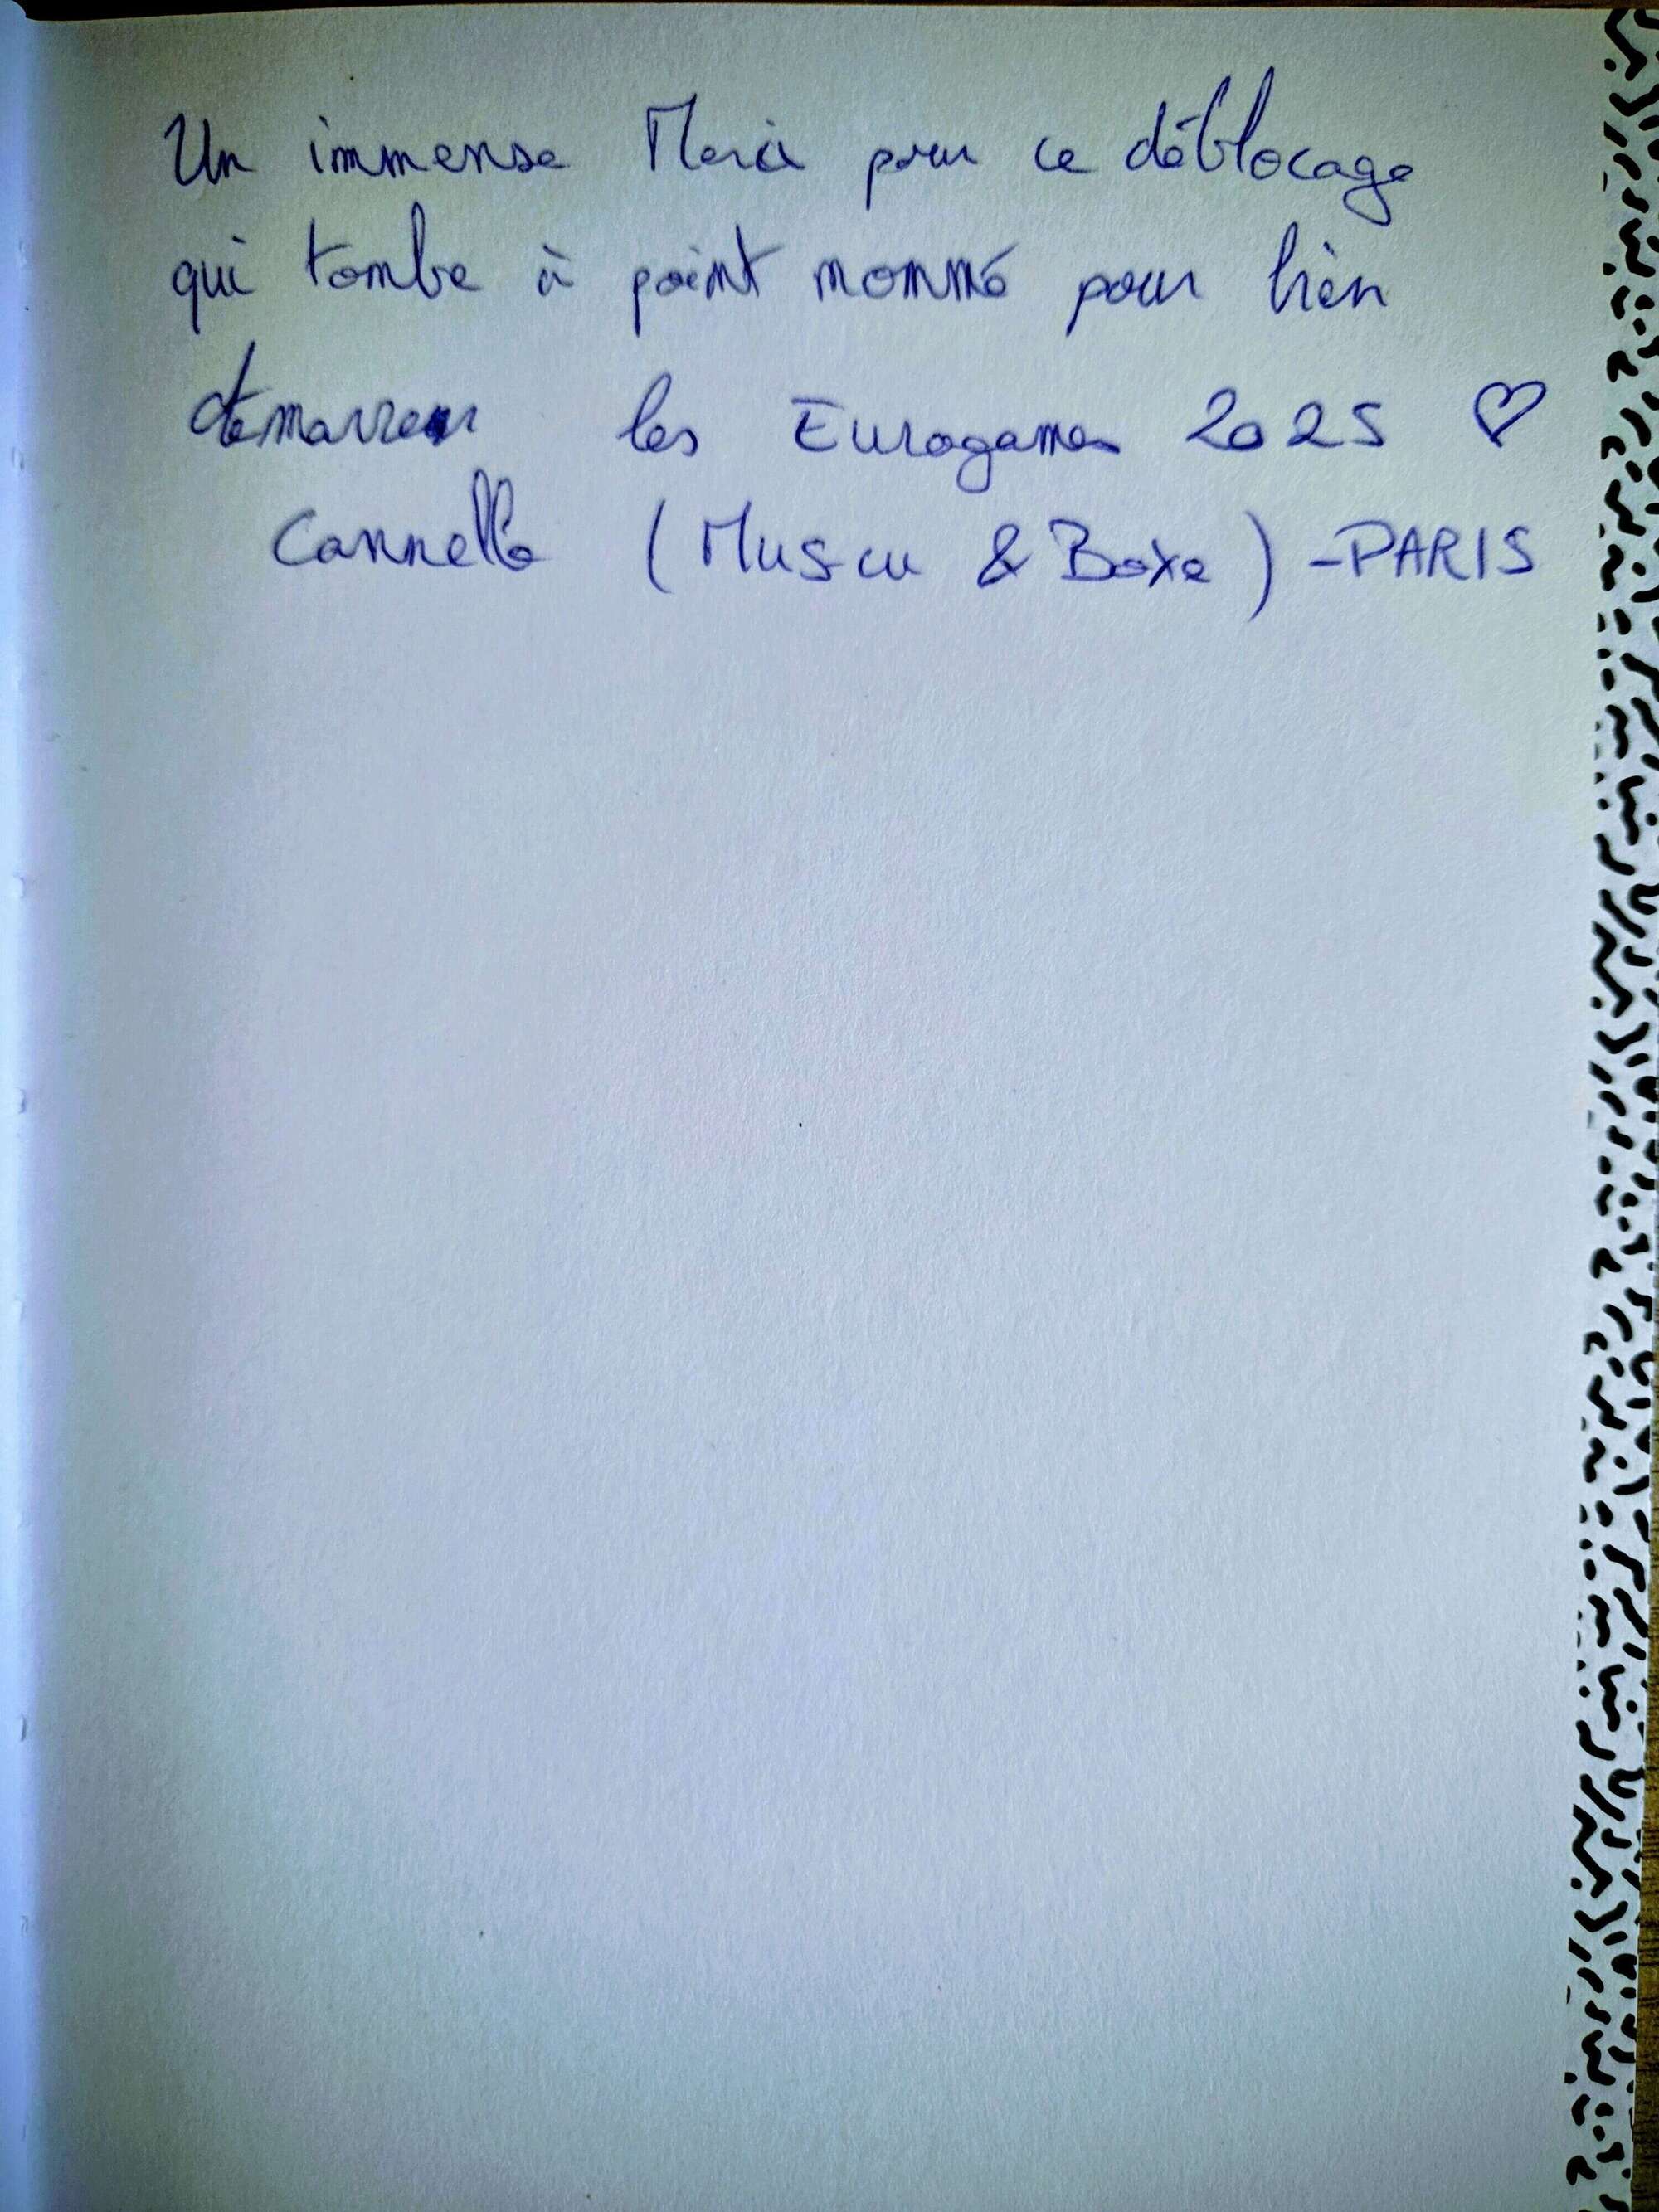 Un immense Merci pour ce déblocage
qui tombe à point nommé pour bien
démarrer les Eurogames 2025 ♡
Cannelle (Muscu & Boxe) - PARIS